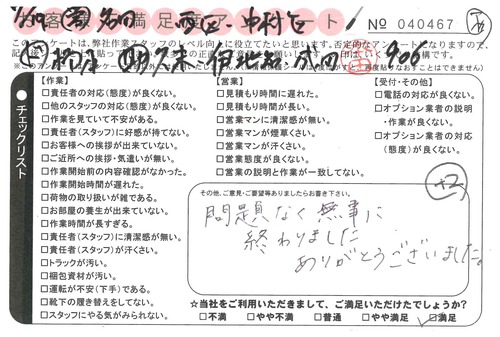 お客様満足度アンケート
No 040467
このアンケートは、弊社作業スタッフのレベル向上に役立てたいと思います。
チェックリスト
【作業】
□責任者の対応(態度)が良くない。
□他のスタッフの対応(態度)が良くない。
□作業を見ていて不安がある。
□責任者(スタッフ)に好感が持てない。
□お客様への挨拶が出来ていない。
□ご近所への挨拶・気遣いが無い。
□作業開始前の内容確認がなかった。
□作業開始時間が遅れた。
□荷物の取り扱いが雑である。
□お部屋の養生が出来ていない。
□作業時間が長すぎる。
□責任者(スタッフ)に清潔感が無い。
□責任者(スタッフ)が汗くさい。
□トラックが汚い。
□梱包資材が汚い。
□運転が不安(下手)である。
□靴下の履き替えをしてない。
□スタッフにやる気がみられない。
【営業】
□見積もり時間に遅れた。
□見積もり時間が長い。
□営業マンに清潔感が無い。
□営業マンが煙草くさい。
□営業マンが汗くさい。
□営業態度が良くない。
□営業の説明と作業が一致してない。
【受付・その他】
□電話の対応が良くない。
□オプション業者の説明・作業が良くない。
□オプション業者の対応(態度)が良くない。
+2
その他、ご意見・ご要望等ありましたらお書き下さい。
問題なく無事に
終わりました
ありがとうございました。
☆当社をご利用いただきまして、ご満足いただけたでしょうか?
□不満 □やや不満 □普通 □やや満足 □満足